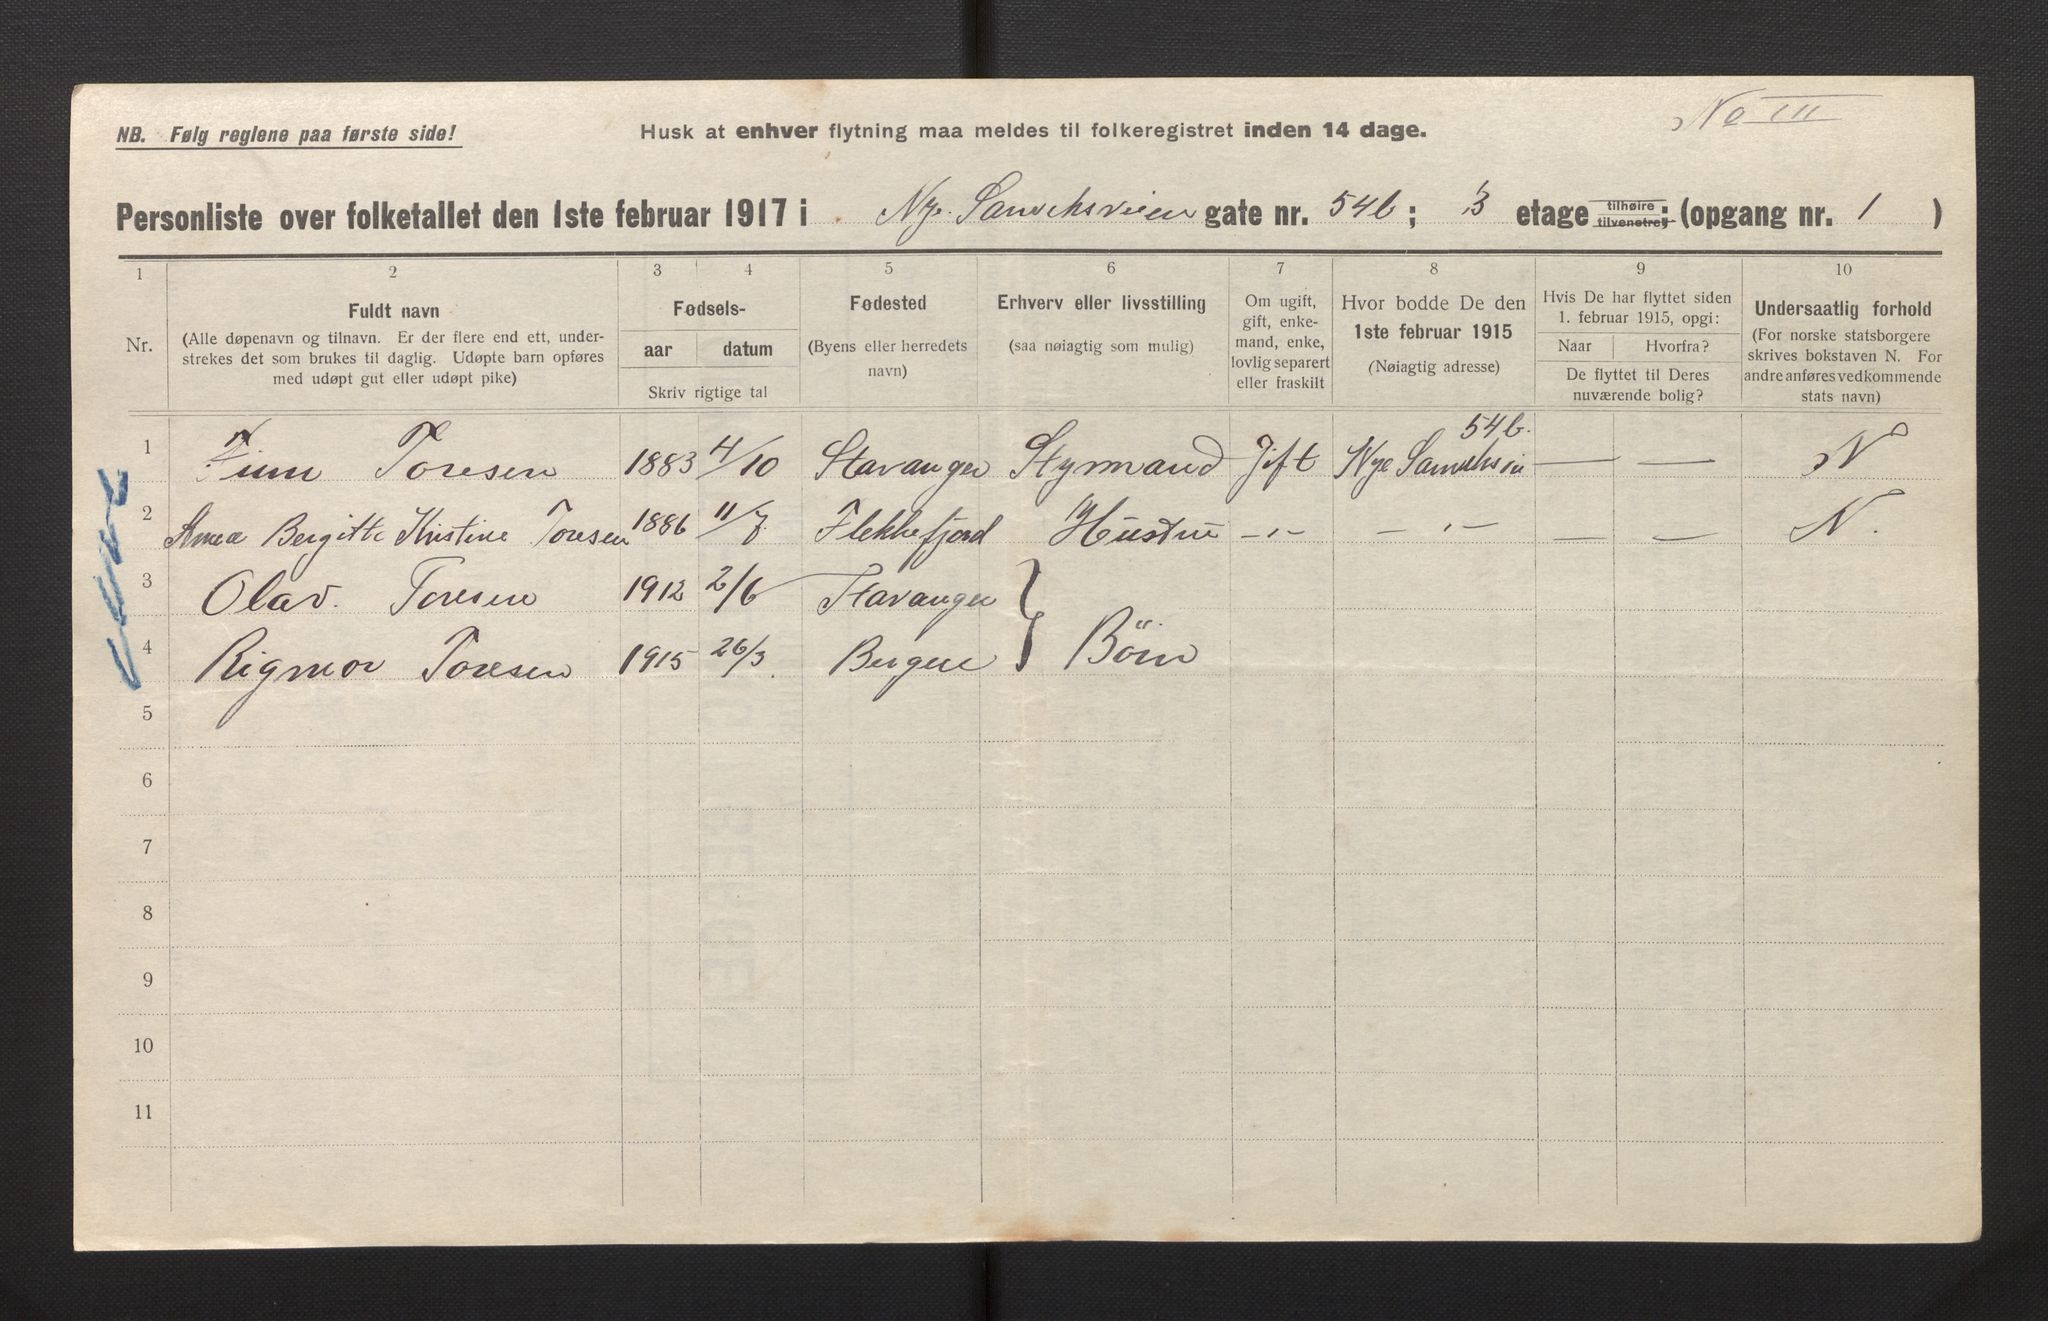 No III
NB. Følg reglene paa første side!
Husk at enhver flytning maa meldes til folkeregistret inden 14 dage.
Personliste over folketallet den 1ste februar 1917 i Nye Sandviksveien gate nr. 54b; 3 etage tilhøire tilvenstre; (opgang nr. 1)
1 2 3 4 5 6 7 8 9 10
Nr.
Fuldt navn
(Alle døpenavn og tilnavn. Er der flere end ett, under-
strekes det som brukes til daglig. Udøpte barn opføres
med udøpt gut eller udøpt pike)
Fødsels-
aar datum
Skriv rigtige tal
Fødested
(Byens eller herredets
navn)
Erhverv eller livsstilling
(saa nøiagtig som mulig)
Om ugift,
gift, enke-
mand, enke,
lovlig separert
eller fraskilt
Hvor bodde De den
1ste februar 1915
(Nøiagtig adresse)
Hvis De har flyttet siden
1. februar 1915, opgi:
Naar Hvorfra?
De flyttet til Deres
nuværende bolig?
Undersaatlig forhold
(For norske statsborgere
skrives bokstaven N. For
andre anføres vedkommende
stats navn)
54b.
1 Finn Toresen 1883 4/10 Stavanger Styrmand Gift Nye Sandviksvei — — N
2 Bergitte Kristine Toresen 1886 11/7 Flekkefjord Hustru -"- - " - — — N.
3 Olav. Toresen 1912 2/6 Stavanger
4 Rigmor Toresen 1915 26/3. Bergen } Börn
5
6
7
8
9
10
11